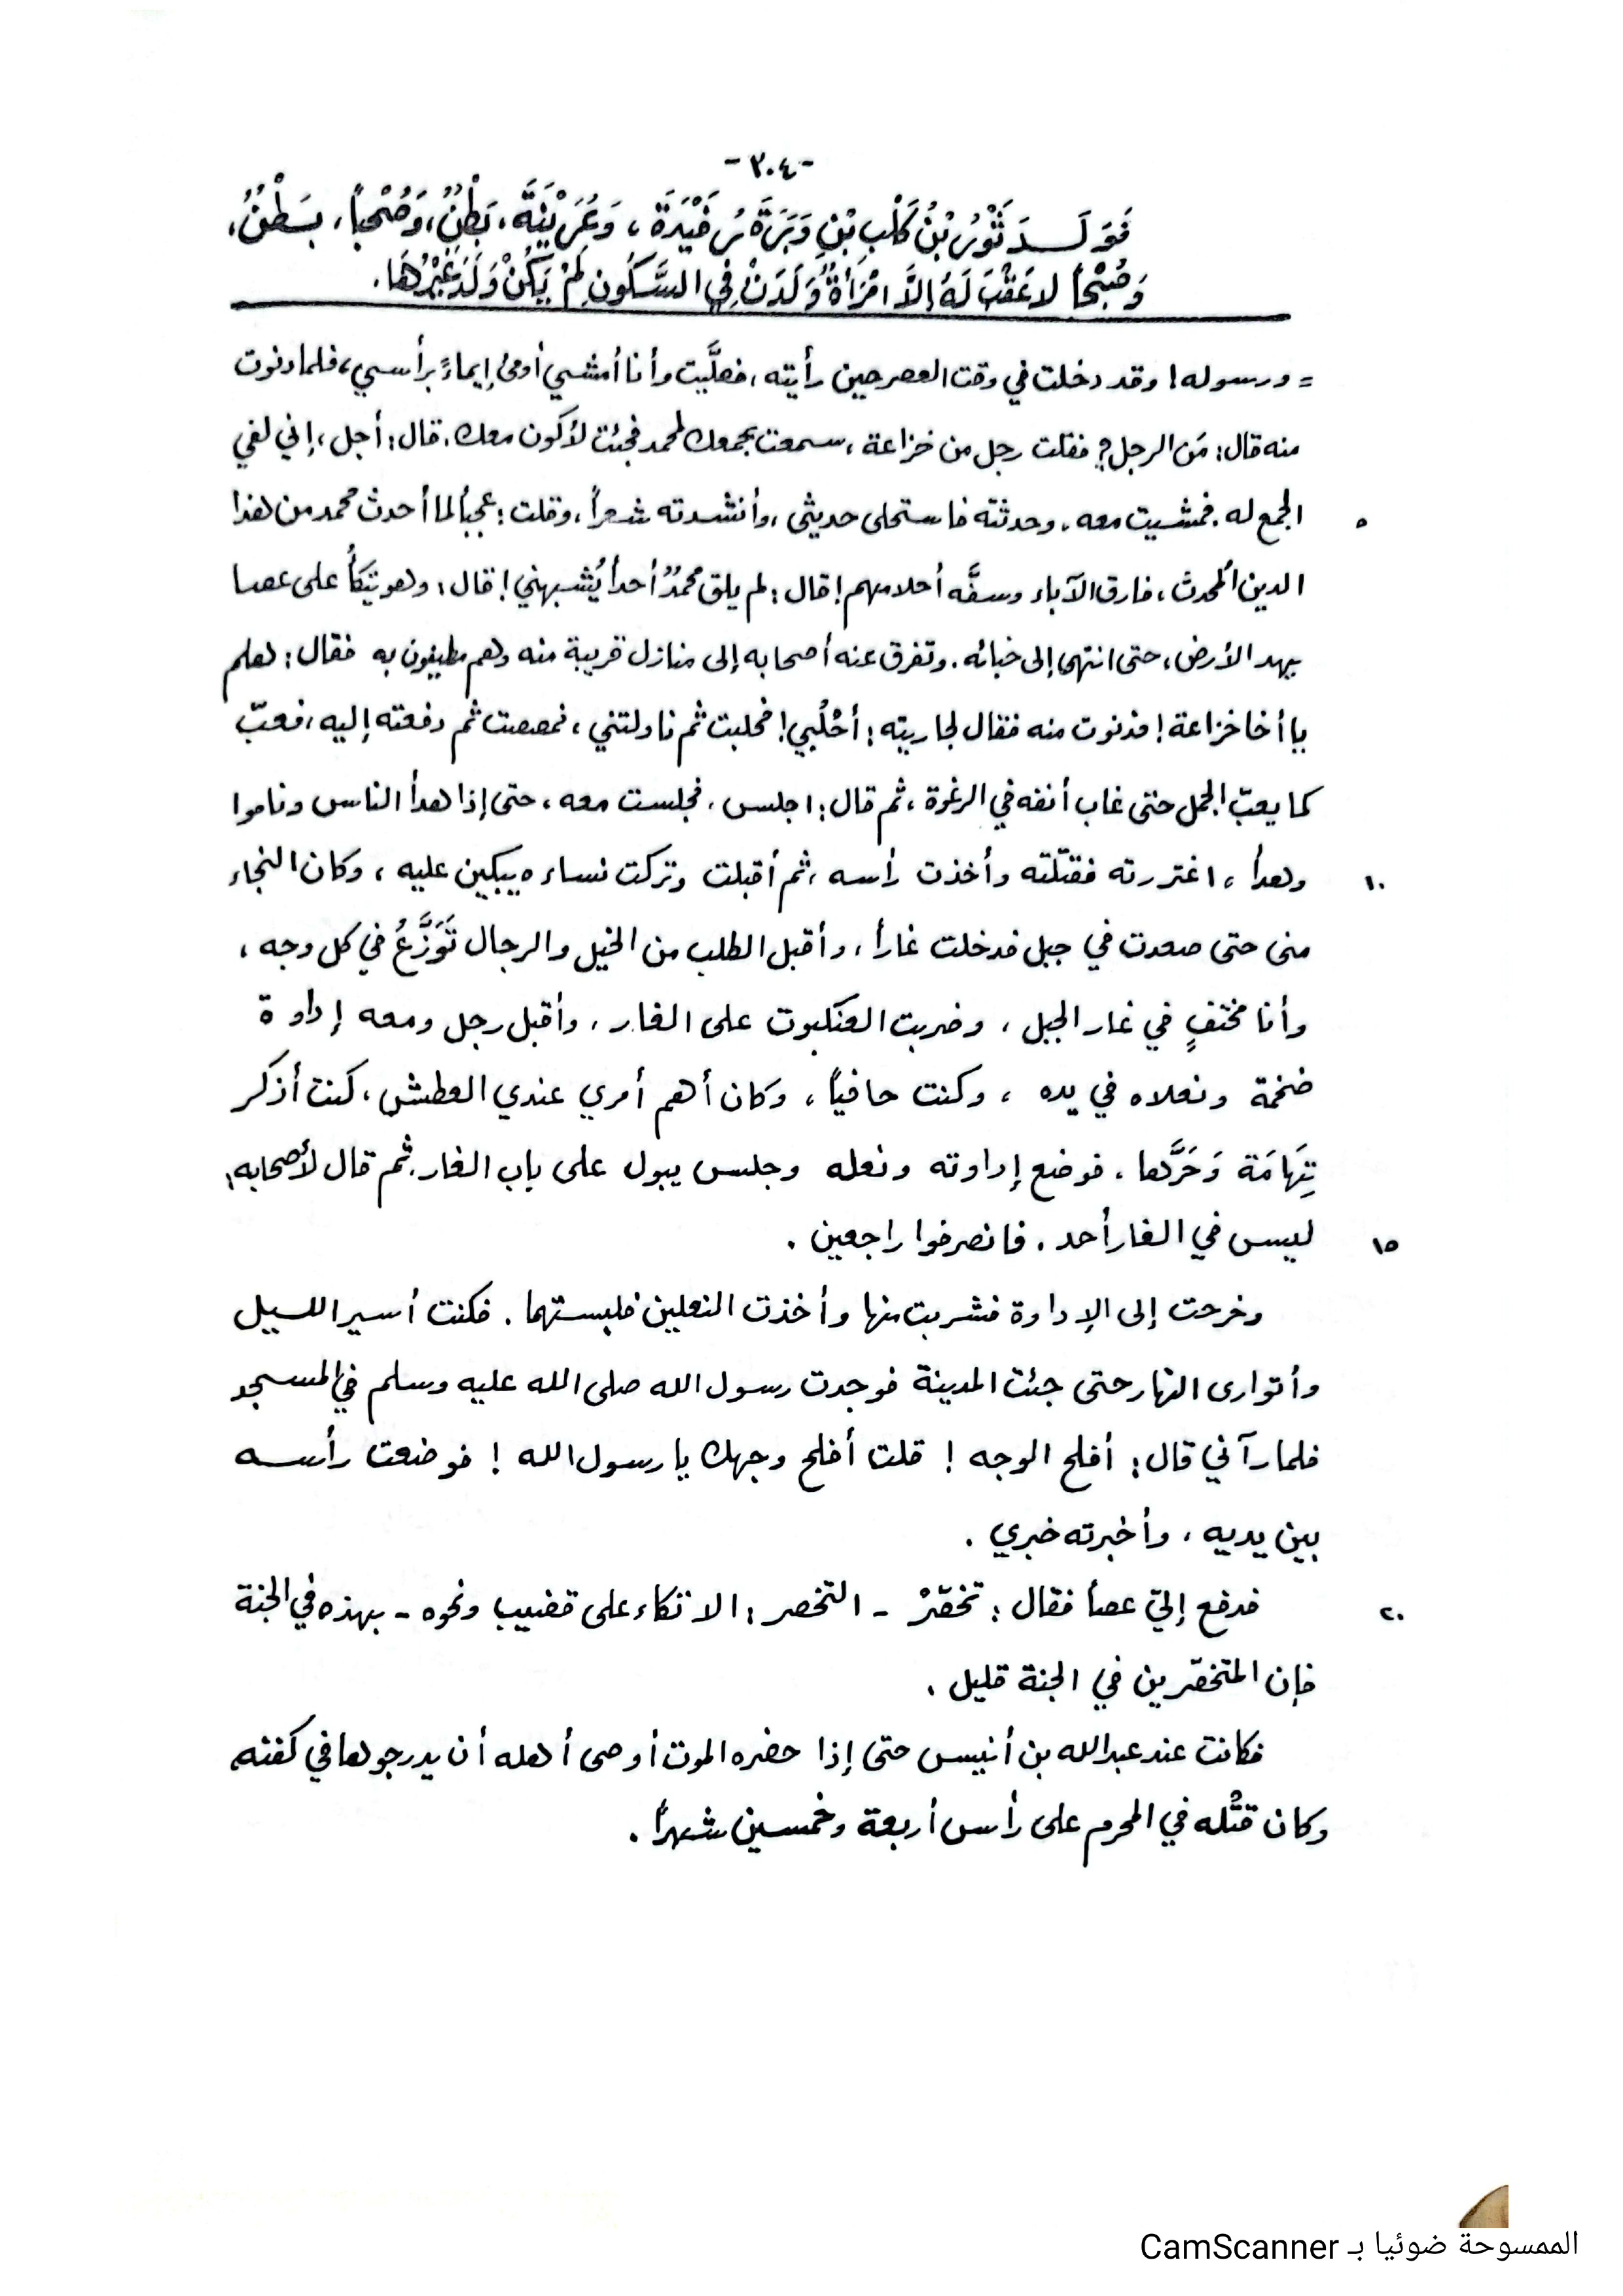 -٣٠٤-
فَوَلَدَ ثَوْرُ بْنُ كَلْبِ بْنِ وَبَرَةَ رُفَيْدَةَ، وَعُرَيْنَةَ، بَطْنٌ، وَصُحْباً، بَطْنٌ،
وَصُبْحاً لا عَقْبَ لَهُ إلاَّ امْرَأةٌ وَلَدَتْ فِي السَّكُونِ لَمْ يَكُنْ وَلَدَ غَيْرُهَا.
= ورسوله! وقد دخلت في وقت العصر حين رأيته، فصلَّيت وأنا أمشي أومئ إيماءً برأسي، فلما دنوت
منه قال: مَن الرجل؟ فقلت رجل من خزاعة، سمعت بجمعك لمحمد فجئت لأكون معك. قال: أجل، إني لفي
٥ الجمع له. فمشيت معه. وحدثته فاستحلى حديثي، وأنشدته شعراً، وقلت: عجباً لما أحدث محمد من هذا
الدين المُحدث، فارق الآباء وسفَّه أحلامهم! قال: لم يلق محمدٌ أحداً يُشبهني! قال: وهو يتكأُ على عصا
يهد الأرض، حتى انتهى إلى خبائه. وتفرق عنه أصحابه إلى منازل قريبة منه وهم مطيفون به فقال: هلم
يا أخا خزاعة! فدنوت منه فقال لجاريته: أحْلُبي! فحلبت ثم ناولتني، فمصصت ثم دفعته إليه، فعبّ
كما يعبّ الجمل حتى غاب أنفه في الرغوة، ثم قال: اجلس. فجلست معه، حتى إذا هدأ الناس وناموا
١٠ وهدأ، اغتررته فقتلته وأخذت رأسه، ثم أقبلت وتركت نساءه يبكين عليه، وكان النجاء
منى حتى صعدت في جبل فدخلت غاراً، وأقبل الطلب من الخيل والرجال تَوَزَّعُ في كل وجه،
وأنا مختفٍ في غار الجبل، وضربت العنكبوت على الغار، وأقبل رجل ومعه إداوة
ضخمة ونعلاه في يده، وكنت حافياً، وكان أهم أمري عندي العطش، كنت أذكر
تِهَامَة وَحَرَّها، فوضع إداوته ونعله وجلس يبول على باب الغار. ثم قال لأصحابه:
١٥ ليس في الغار أحد. فانصرفوا راجعين.
وخرجت إلى الإداوة فشربت منها وأخذت النعلين فلبستهما. فكنت أسير الليل
وأتوارى النهار حتى جئت المدينة فوجدت رسول الله صلى الله عليه وسلم في المسجد
فلما رآني قال: أفلح الوجه! قلت أفلح وجهك يا رسول الله! فوضعت رأسه
بين يديه، وأخبرته خبري.
٢٠ فدفع إليّ عصاً فقال: تخصّرْ - التخصر: الاتكاء على قضيب ونحوه - بهذه في الجنة
فإن المتخصّرين في الجنة قليل.
فكانت عند عبدالله بن أنيس حتى إذا حضره الموت أوصى أهله أن يدرجوها في كفنه
وكان قتْله في المحرم على رأس أربعة وخمسين شهراً.
الممسوحة ضوئيا بـ CamScanner